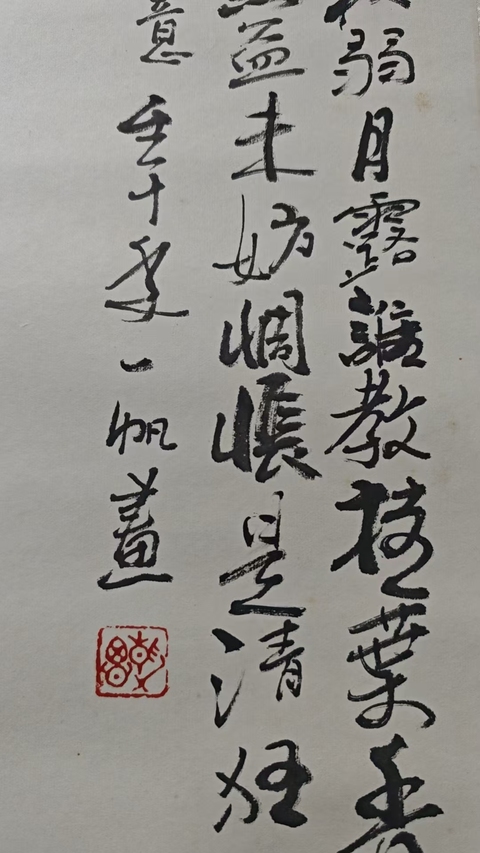 弱月露誰教桂葉香
益未妨惆悵是清狂
意 壬午夏一帆畫